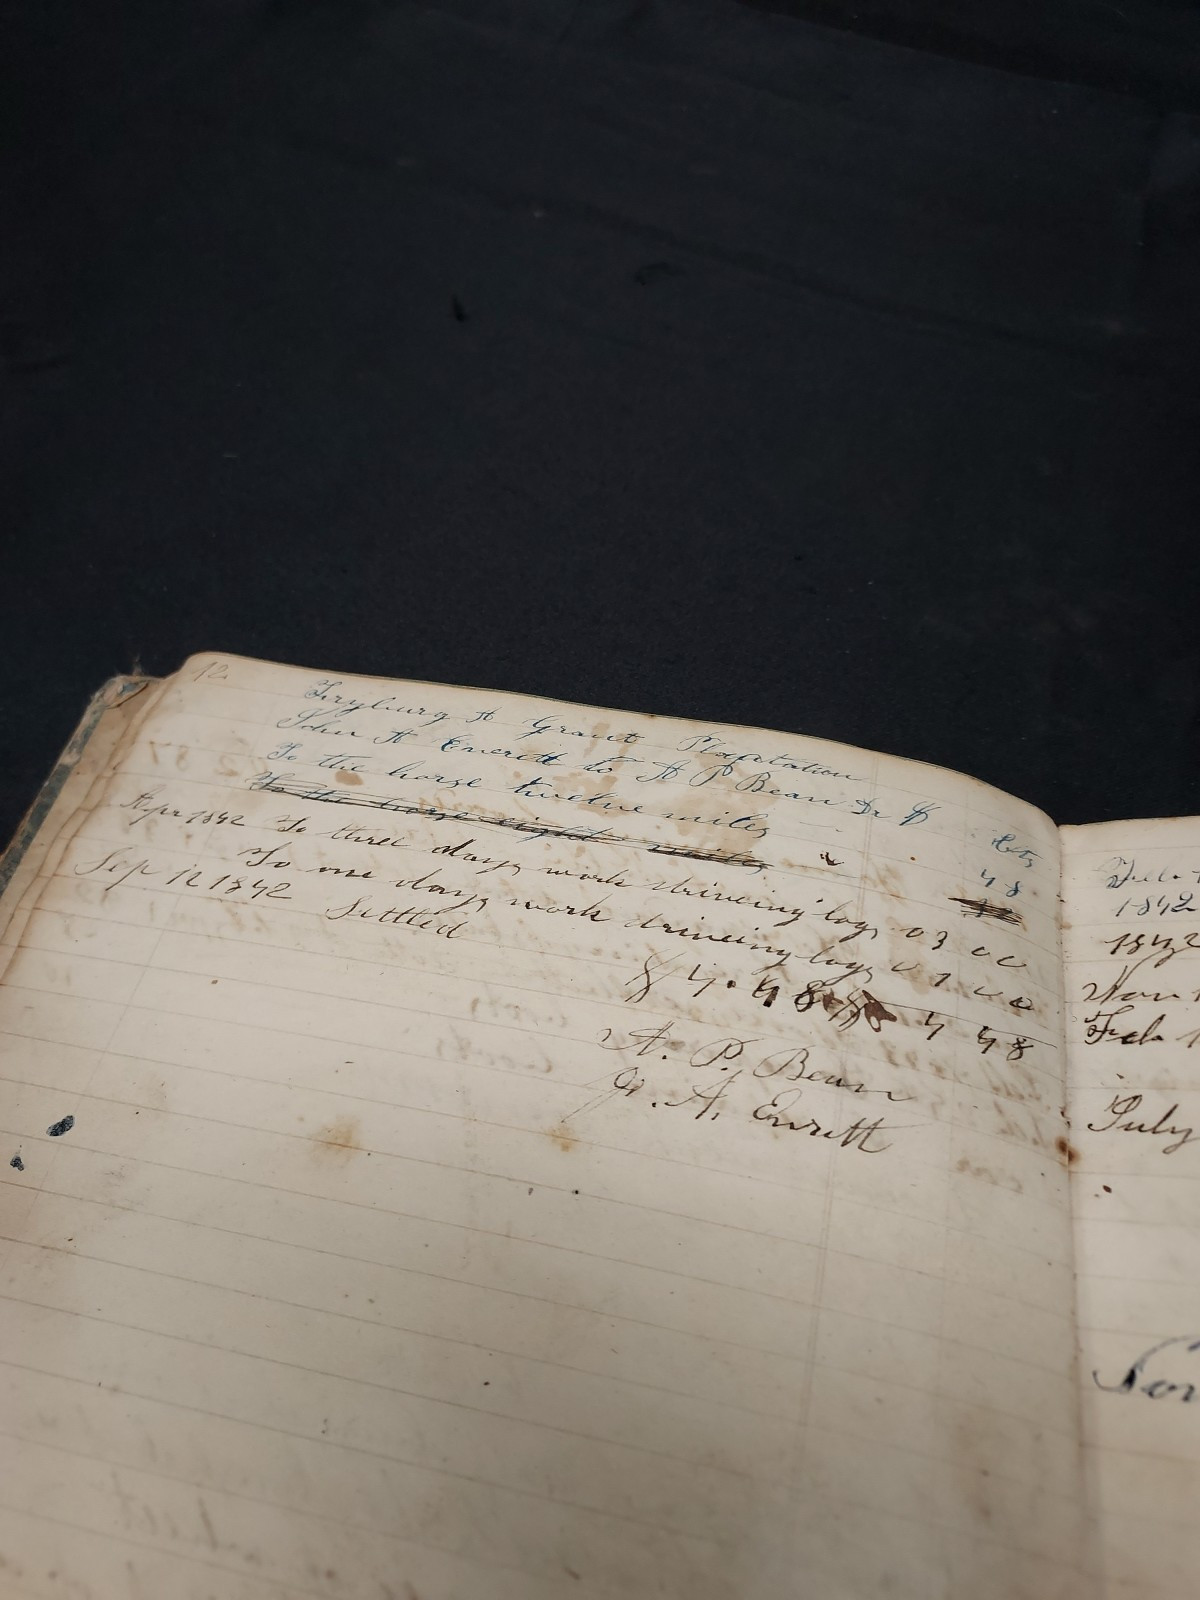 12
Fryburg A Grant Plantation
John A Everett to A P Bean Dr $ Cts
To the horse twelve miles 48
To the horse eight miles
Apr 1842 To three days work driveing logs 03 00
To one days work driveing logs 0 1 00
Sep 12 1842 Settled
$ 4.48 4 48
A. P. Bean
J. A. Everett
1842
1842
Nov 1
Feb 1
July